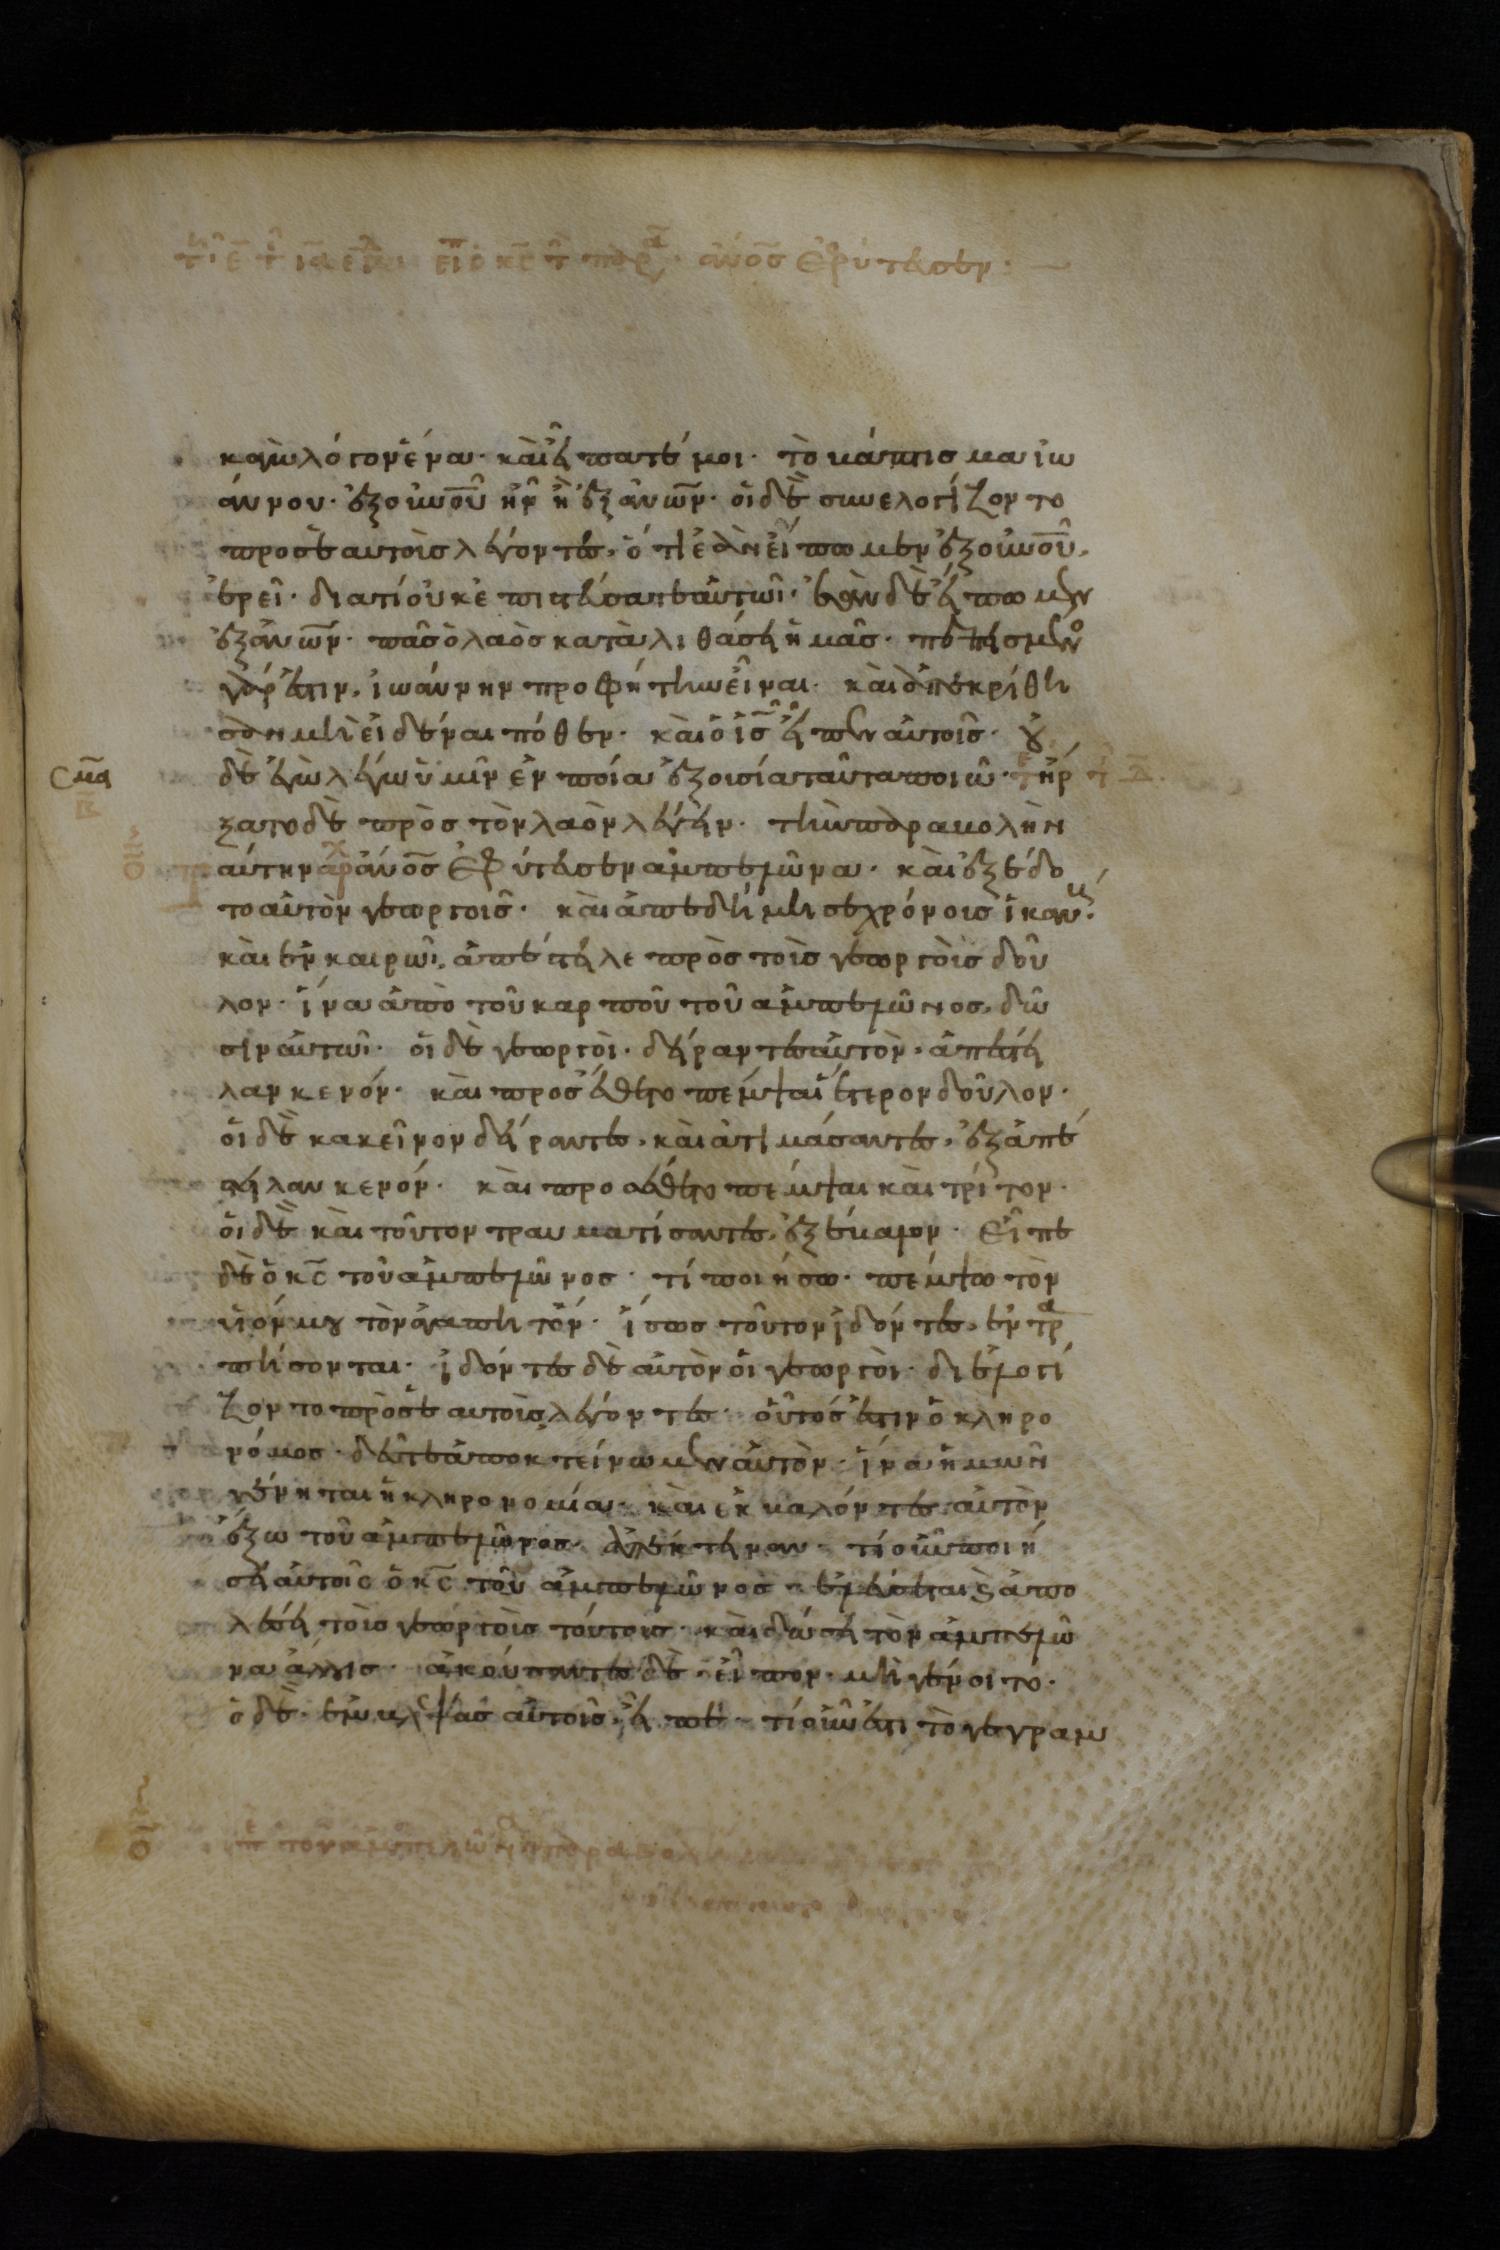 ἄνο̅σ ἐφύτευσεν:
καγὼ λόγον ἕνα· καὶ εἴπατέ μοι· τὸ βάπτισμα ἰω
άννου· ἐξ οὐνο̅υ ἦν ἢ ἐξ ἀνω̅ν· οἱ δὲ συνελογίζοντο
προσ ἑαυτοὺσ λέγοντεσ, ὅτι ἐὰν εἴπωμεν ἐξ οὐνο̅υ,
ἐρεῖ· διατί οὐκ ἐπιστεύσατε αὐτῶι· ἐὰν δὲ εἴπωμεν
ἐξ ἀνω̅ν· πᾶσ ὁ λαὸσ καταλιθάσει ἡμᾶσ· πεπεισμένοσ
γάρ ἐστιν, ἰωάννην προφήτην εἶναι· καὶ ἀπεκρίθη
σαν μὴ εἰδέναι πόθεν· καὶ ὁ ἰσ̅ εἶπεν αὐτοῖσ· οὐ
δὲ ἐγὼ λέγω ὑμῖν ἐν ποία ἐξουσία ταῦτα ποιῶ· ἤρ
ξατο δὲ πρὸσ τὸν λαὸν λέγειν· τὴν παραβολὴν
αύτην ἄνο̅σ ἐφύτευσεν ἀμπελῶνα· καὶ ἐξέδο
το αὐτὸν γεωργοῖσ· καὶ ἀπεδήμησε χρόνουσ ἱκανούσ·
καὶ ἐν καιρῶι, ἀπέστειλε πρὸσ τοὺσ γεωργοὺσ δοῦ
λον· ἵνα ἀπὸ τοῦ καρποῦ τοῦ ἀμπελῶνοσ, δῶ
σιν αὐτῶι· οἱ δὲ γεωργοὶ· δείραντεσ αὐτὸν, ἀπέστει
λαν κενόν· καὶ προσέθετο πέμψαι ἕτερον δοῦλον·
οἱ δὲ κακεῖνον δείραντεσ, καὶ ἀτιμάσαντεσ, ἐξαπέ
στειλαν κενόν· καὶ προσέθετο πέμψαι καὶ τρίτον·
οἱ δὲ καὶ τοῦτον τραυματίσαντεσ, ἐξέβαλον· εἶπε
δὲ ὁ κσ̅ τοῦ ἀμπελῶνοσ· τί ποιήσω· πέμψω τὸν
υἱόν μου τὸν ἀγαπητόν· ἴσωσ τοῦτον ἰδόντεσ, ἐντρα
πήσονται· ἰδόντεσ δὲ αὐτὸν οἱ γεωργοὶ· διελογί
ζοντο πρὸσ ἑαυτοὺσ λέγοντεσ· οὗτόσ ἐστιν ὁ κληρο
νόμοσ· δεῦτε ἀποκτείνωμεν αὐτὸν· ἵνα ἡμῶν
γένηται ἡ κληρονομία· καὶ ἐκβαλόντεσ αὐτὸν
ἔξω τοῦ ἀμπελῶνοσ· ἀπέκτειναν· τί οὖν ποιή
σει αὐτοῖσ ὁ κσ̅ τοῦ ἀμπελῶνοσ· ἐλεύσεται ϗ ἀπο
λέσει τοὺσ γεωργοὺσ τούτουσ· καὶ δώσει τὸν ἀμπελῶ
να ἄλλοισ· ἀκούσαντεσ δὲ· εἶπον· μὴ γένοιτο·
ὁ δὲ· ἐμβλέψασ αὐτοῖσ, εἶπε· τί οὖν ἐστι τὸ γεγραμ